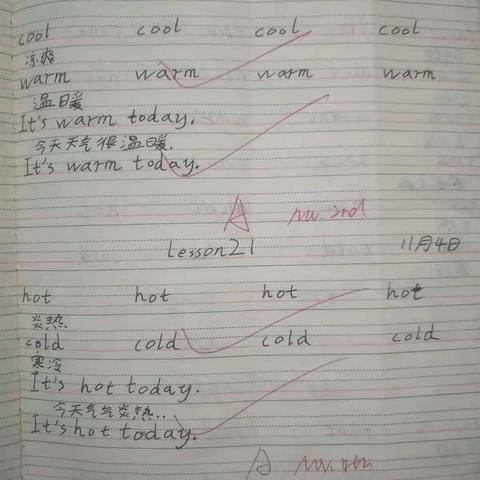 cool cool cool cool
凉爽
warm warm warm warm
温暖
It's warm today.
今天天气很温暖.
It's warm today.
A nu. 2nd
Lesson21 11月4日
hot hot hot hot
炎热
cold cold cold cold
寒冷
It's hot today.
今天天气气炎热..
It's hot today.
A